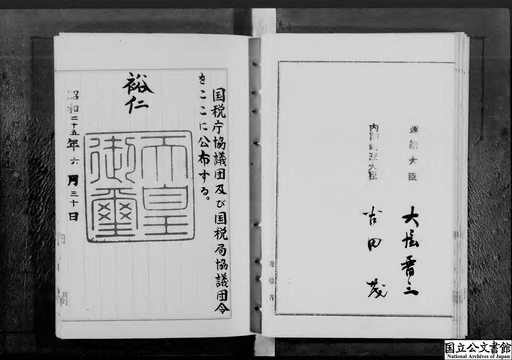 運輸大臣 大屋晋三
内閣総理大臣 吉田茂
運輸省
国税庁協議団及び国税局協議団令
をここに公布する。
裕仁
天皇
御璽
昭和二十五年六月三十日
内閣
国立公文書館
National Archives of Japan